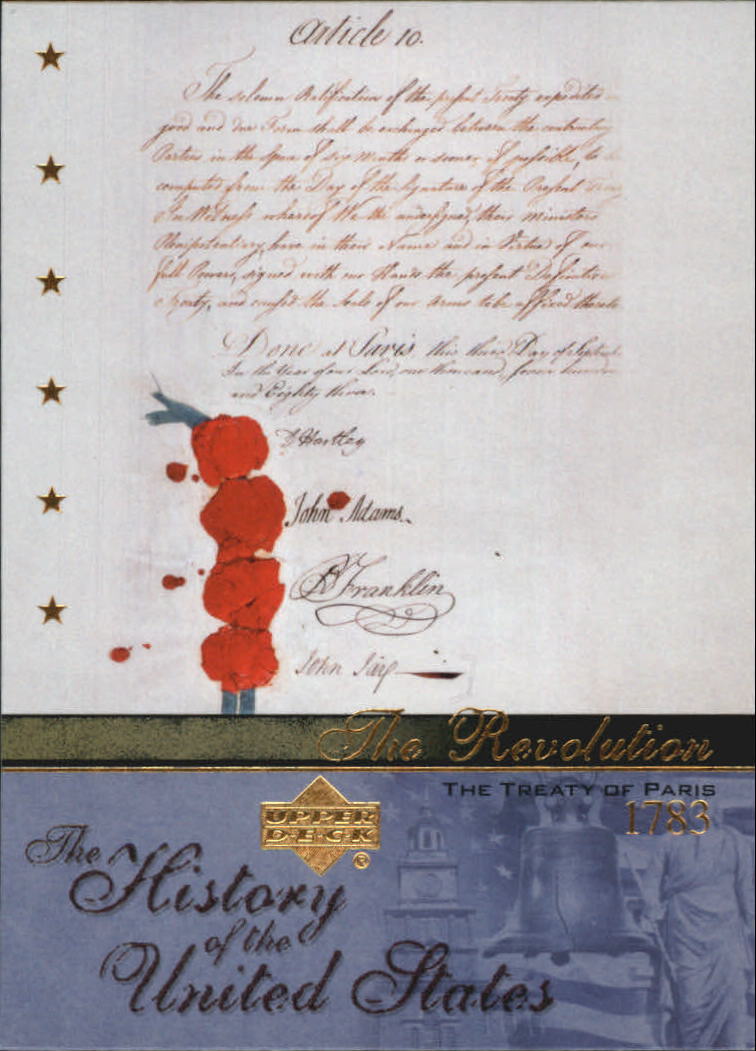 Article 10.
The solemn Ratification of the present Treaty expedited
good and due Form shall be exchanged between the contracting
Parties in the Space of six Months or sooner if possible, to
computed from the Day of the Signature of the Present
In Witness whereof We the undersigned, their Ministers
Plenipotentiary, have in their Name and in Virtue of our
full Powers, signed with our Hands the present Definitive
Treaty, and caused the Seals of our Arms to be affixed thereto
Done at Paris, this third Day of Septem
In the Year of our Lord, one thousand, seven hundred
and Eighty three.
D Hartley
John Adams.
B Franklin
John Jay
The Revolution
THE TREATY OF PARIS
1783
UPPER
D·E·C·K
®
The
History
of the
United States